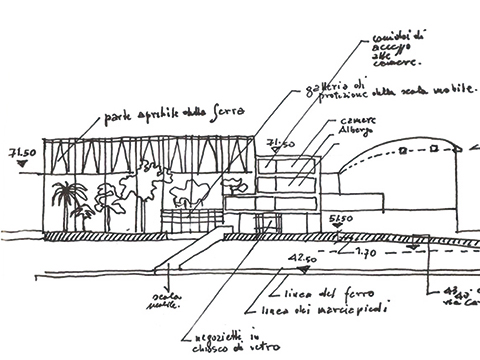 corridoi di
accesso
alle
camere.
galleria di
protezione della scala mobile.
parte apribile della serra
camere
Albergo
71.50
71.50
51.50
1.70
42.50
scala
mobile.
linea del ferro
linea dei marciapiedi
negozietti in
chiosco di vetro